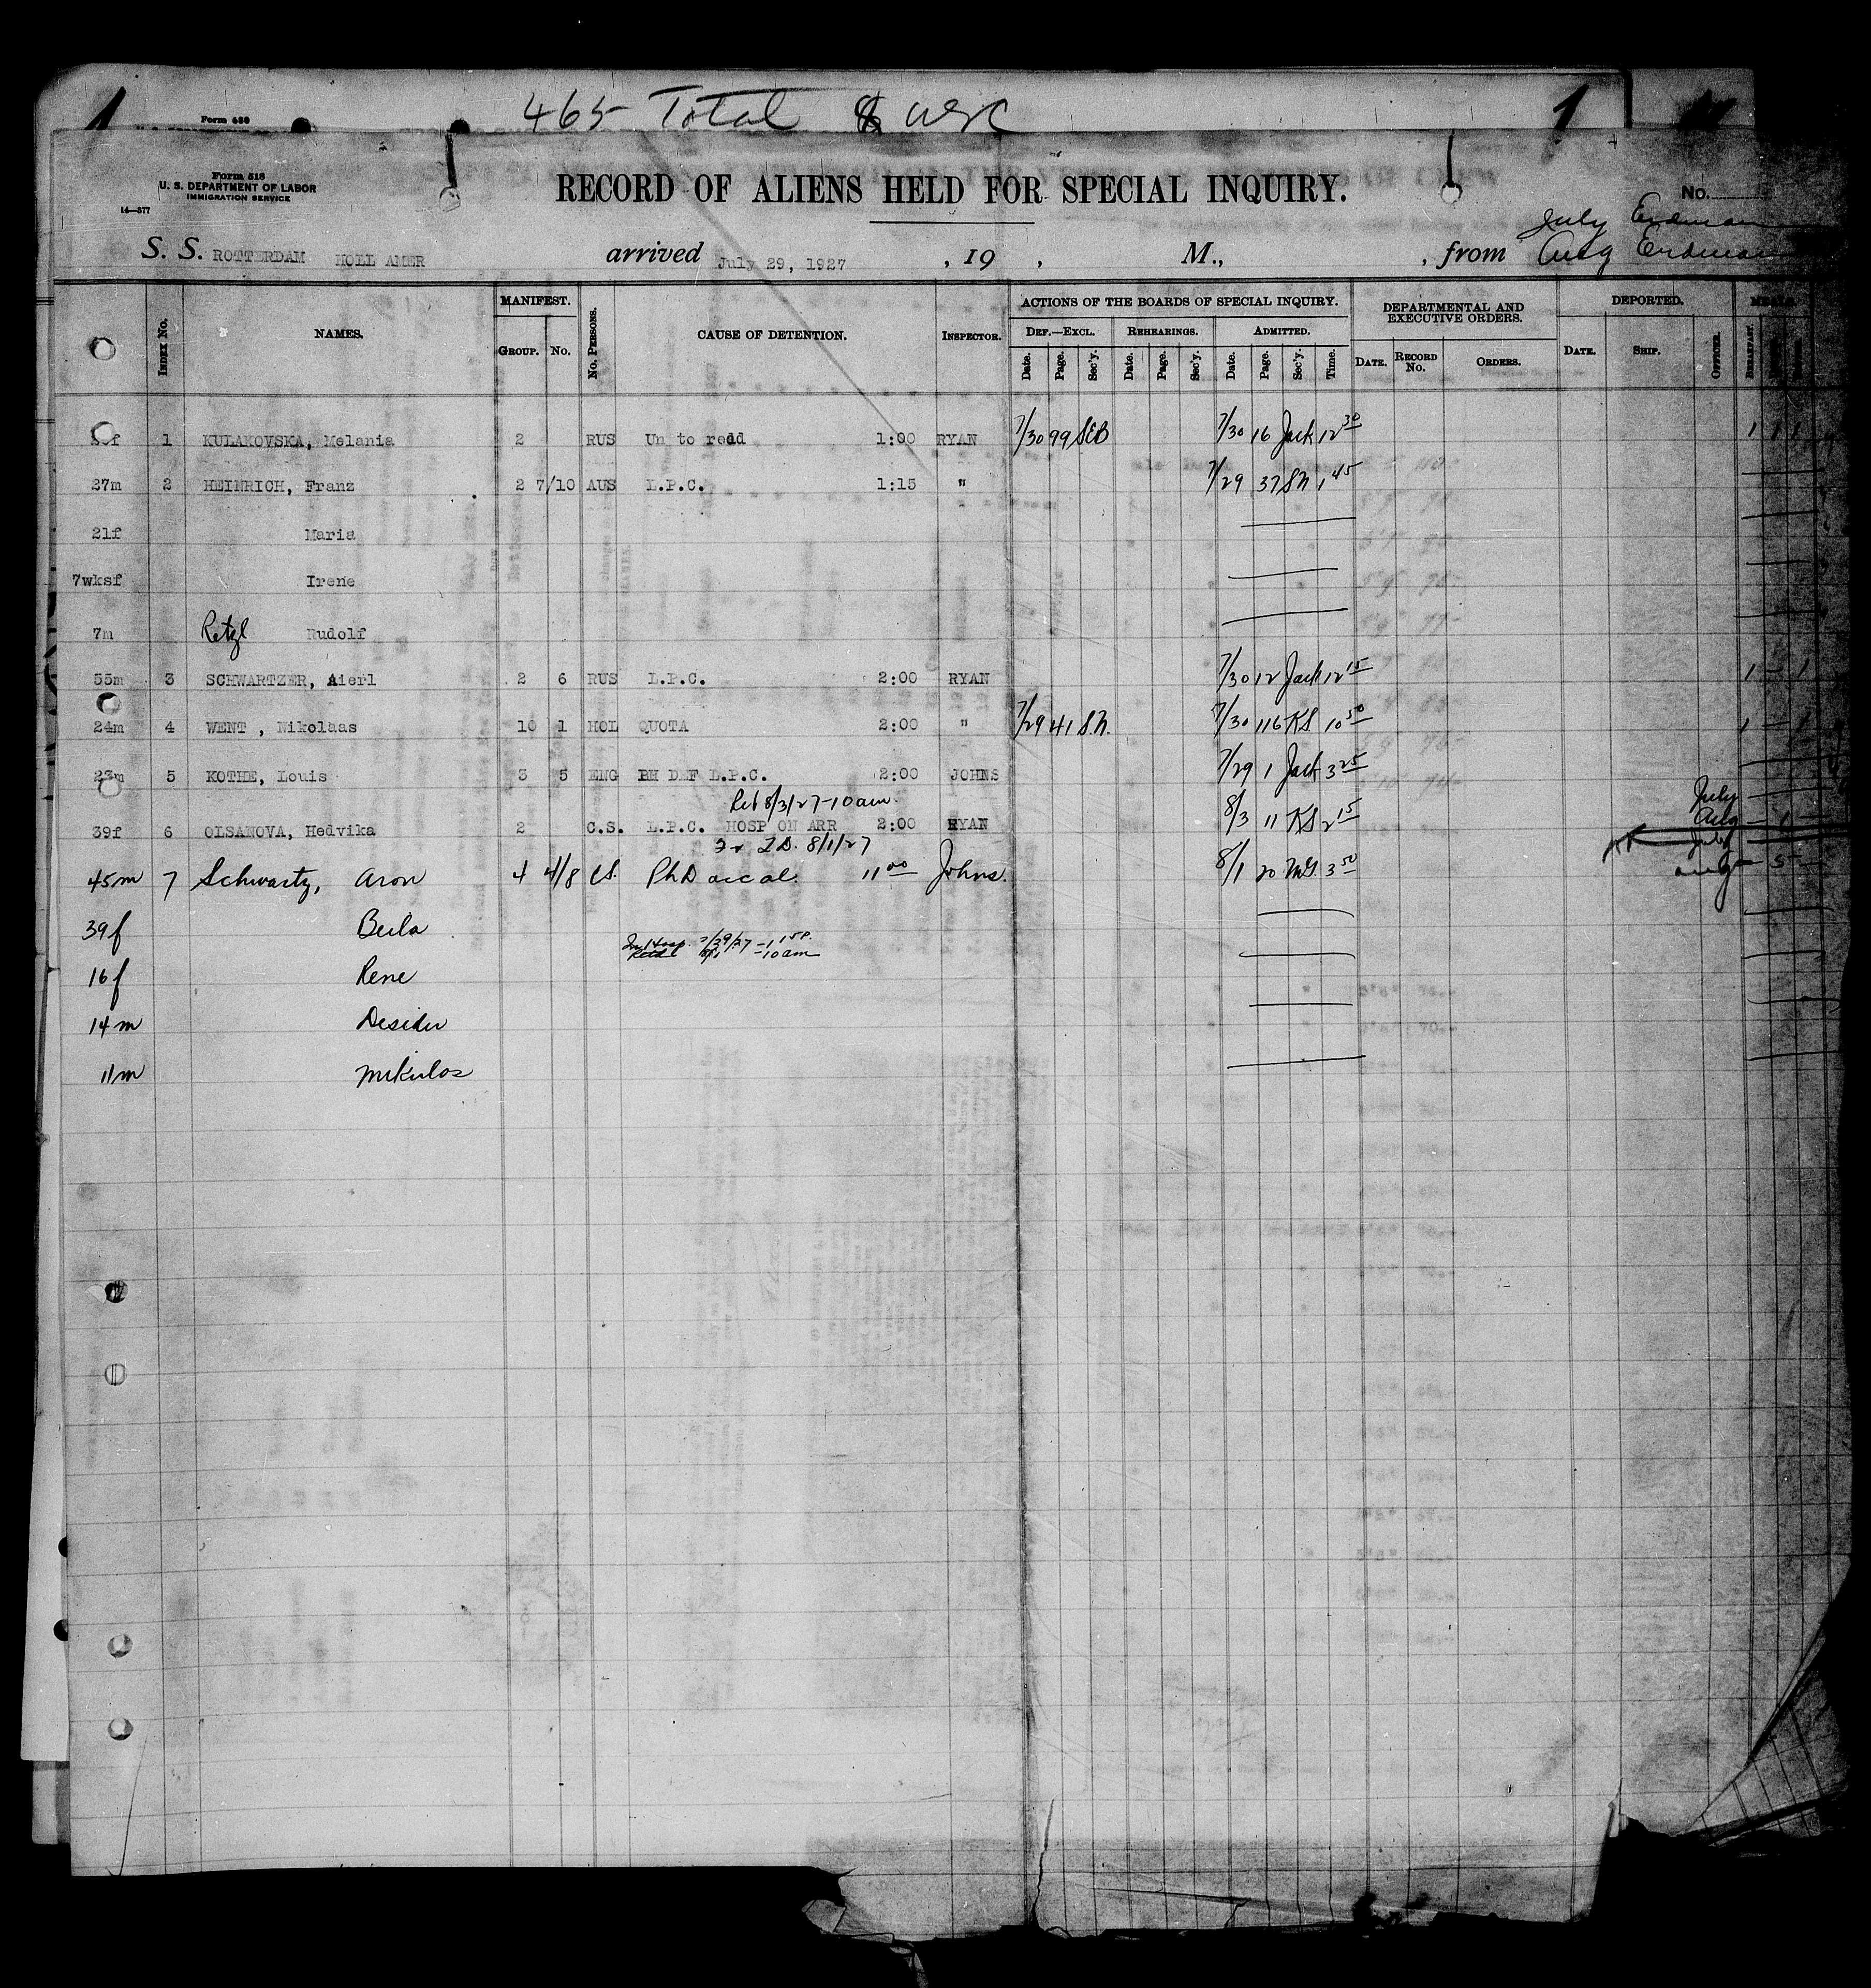 465 Total & USC
1 1
Form 630
Form 518
U. S. DEPARTMENT OF LABOR
IMMIGRATION SERVICE
14—377
RECORD OF ALIENS HELD FOR SPECIAL INQUIRY.
No.
July Erdman
Aug Erdman
S. S. ROTTERDAM HOLL AMER arrived July 29, 1927 , 19 , M., , from
INDEX No. NAMES. MANIFEST. GROUP. No. No. PERSONS. CAUSE OF DETENTION. INSPECTOR. ACTIONS OF THE BOARDS OF SPECIAL INQUIRY. DEPARTMENTAL AND EXECUTIVE ORDERS. DEPORTED. MEALS.
DEF.—EXCL. REHEARINGS. ADMITTED.
Date. Page. Sec'y. Date. Page. Sec'y. Date. Page. Sec'y. Time. DATE. RECORD No. ORDERS. DATE. SHIP. OFFICER. BREAKFAST.
f 1 KULAKOVSKA, Melania 2 RUS Un to redd 1:00 RYAN 7/30 99 SEB 7/30 16 Jack 12 30 1 1 1
27m 2 HEINRICH, Franz 2 7/10 AUS L.P.C. 1:15 " 7/29 37 SN 1 45
21f Maria
7wksf Irene
7m Retzl Rudolf
55m 3 SCHWARTZER, Aierl 2 6 RUS L.P.C. 2:00 RYAN 7/30 12 Jack 12 15 1 — 1
24m 4 WENT , Nikolaas 10 1 HOL QUOTA 2:00 " 7/29 41 S.N. 7/30 116 KS 10 50 1 — 1
23m 5 KOTHE, Louis 3 5 ENG BH DEF L.P.C. 2:00 JOHNS 7/29 1 Jack 3 25
Ret 8/3/27-10am. July
39f 6 OLSANOVA, Hedvika 2 C.S. L.P.C. HOSP ON ARR 2:00 RYAN 8/3 11 KS 2 15 Aug — 1 —
8/1/27 July
45m 7 Schwartz, Aron 4 4/8 CS. PhD acc al. 11 00 Johns. 8/1 20 MG. 3 50 Aug — 5 —
39f Beila
In Hosp. 7/29/27 - 1 15P.
Retd 8/1 - 10am
16f Rene
14m Desider
11m Mikulos